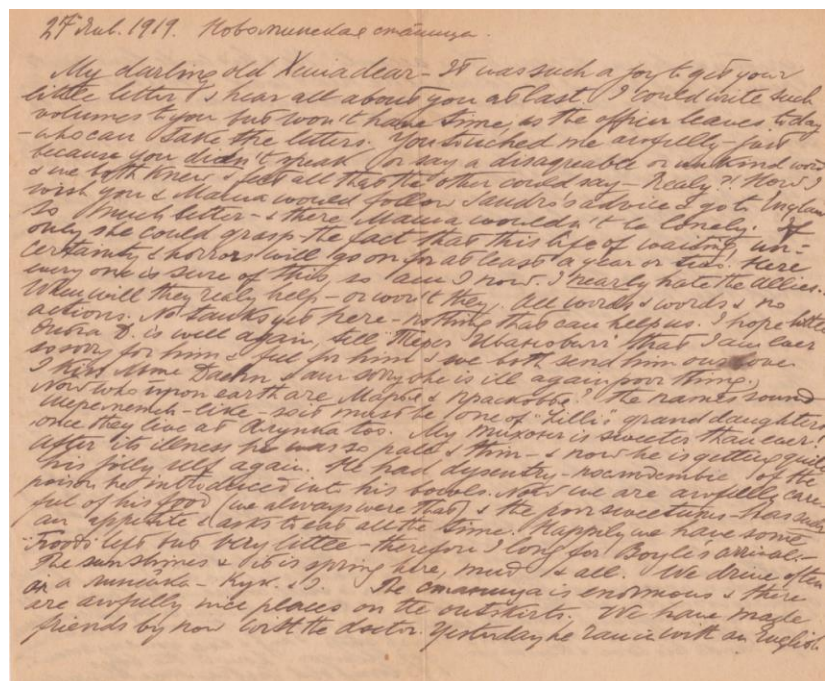 27 Янв. 1919. Новоминская станица.
My darling old Xenia dear – It was such a joy to get your
little letter & hear all about you at last. I could write such
volumes to you but won't have time, as the officer leaves to day
– who can take the letters. You touched me awfully – just
because you didn't speak or say a disagreable or unkind word
& we both knew & felt all that the other could say – Realy?! How I
wish you & Mama would follow Sandro's advice & go to England
so much better – & there Mama wouldn't be lonely. If
only she could grasp the fact that this life of waiting, un=
certainty & horrors will go on for at least a year or two. Here
every one is sure of this, so am I now. I nearly hate the Allies.
When will they realy help – or won't they. All words & words & no
actions. No tanks yet here – nothing that can help us. I hope little
D. is well again, tell that I am ever
so sorry for him & feel for him & we both send him our love
I kiss Mme & am sorry she is ill again poor thing.
Now who upon earth are & ? The names sound
like – so it must be one of "Lilli's granddaughters
once they live at too. My is sweeter than ever!
After its illness he was so pale & thin – & now he is getting quite
his jolly self again. He had dysentry – of the
poison he introduced into his bowels. Now we are awfully care=
ful of his food (we always were that) & the poor sweetums – has such
an appetite & asks to eat all the time. Happily we have some
"Food" left but very little – therefore I long for Boyle's arrival. –
The sun shines & it is spring here, mud & all. We drive often
in a линейка – Кук. & I. The станица is enormous & there
are awfully nice places on the outskirts. We have made
friends by now with the doctor. Yesterday he ran in with an English